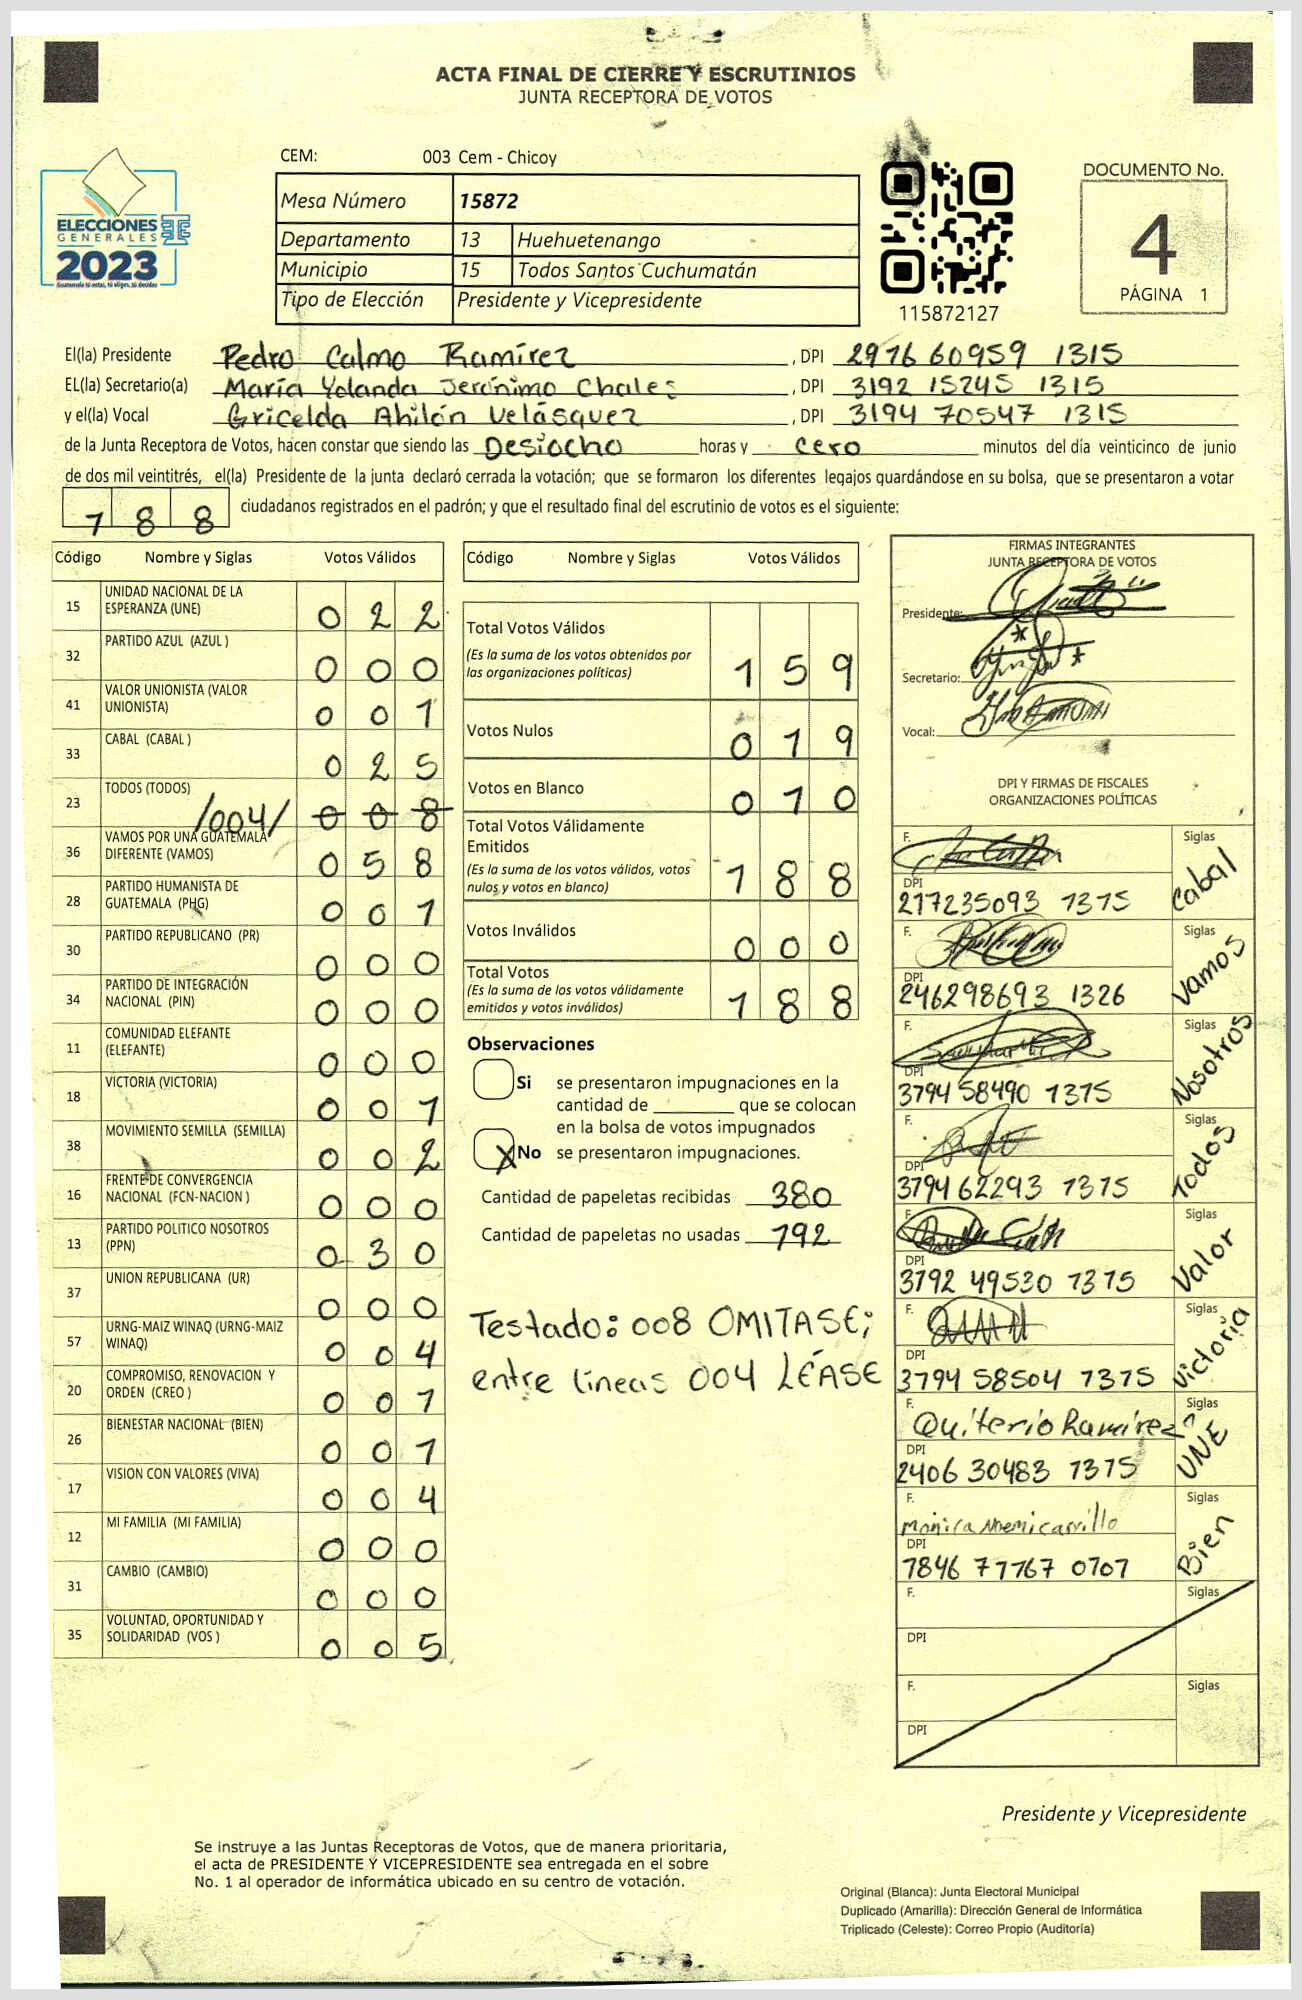 ACTA FINAL DE CIERRE Y ESCRUTINIOS
JUNTA RECEPTORA DE VOTOS
CEM: 003 Cem - Chicoy
ELECCIONES
GENERALES
2023
Guatemala tú estas, tú eliges, tú decides
Mesa Número 15872
Departamento 13 Huehuetenango
Municipio 15 Todos Santos Cuchumatán
Tipo de Elección Presidente y Vicepresidente
115872127
DOCUMENTO No.
4
PÁGINA 1
El(la) Presidente Pedro Calmo Ramírez , DPI 2976 60959 1315
EL(la) Secretario(a) María Yolanda Jerónimo Chales , DPI 3192 15245 1315
y el(la) Vocal Gricelda Ahilón Velásquez , DPI 3194 70547 1315
de la Junta Receptora de Votos, hacen constar que siendo las Desiocho horas y cero minutos del día veinticinco de junio
de dos mil veintitrés, el(la) Presidente de la junta declaró cerrada la votación; que se formaron los diferentes legajos guardándose en su bolsa, que se presentaron a votar
188 ciudadanos registrados en el padrón; y que el resultado final del escrutinio de votos es el siguiente:
Código Nombre y Siglas Votos Válidos
15 UNIDAD NACIONAL DE LA
ESPERANZA (UNE) 0 2 2
32 PARTIDO AZUL (AZUL ) 0 0 0
41 VALOR UNIONISTA (VALOR
UNIONISTA) 0 0 1
33 CABAL (CABAL ) 0 2 5
23 TODOS (TODOS) /004/ 0 0 8
36 VAMOS POR UNA GUATEMALA
DIFERENTE (VAMOS) 0 5 8
28 PARTIDO HUMANISTA DE
GUATEMALA (PHG) 0 0 1
30 PARTIDO REPUBLICANO (PR) 0 0 0
34 PARTIDO DE INTEGRACIÓN
NACIONAL (PIN) 0 0 0
11 COMUNIDAD ELEFANTE
(ELEFANTE) 0 0 0
18 VICTORIA (VICTORIA) 0 0 1
38 MOVIMIENTO SEMILLA (SEMILLA) 0 0 2
16 FRENTE DE CONVERGENCIA
NACIONAL (FCN-NACION ) 0 0 0
13 PARTIDO POLITICO NOSOTROS
(PPN) 0 3 0
37 UNION REPUBLICANA (UR) 0 0 0
57 URNG-MAIZ WINAQ (URNG-MAIZ
WINAQ) 0 0 4
20 COMPROMISO, RENOVACION Y
ORDEN (CREO ) 0 0 1
26 BIENESTAR NACIONAL (BIEN) 0 0 1
17 VISION CON VALORES (VIVA) 0 0 4
12 MI FAMILIA (MI FAMILIA) 0 0 0
31 CAMBIO (CAMBIO) 0 0 0
35 VOLUNTAD, OPORTUNIDAD Y
SOLIDARIDAD (VOS ) 0 0 5
Código Nombre y Siglas Votos Válidos
Total Votos Válidos
(Es la suma de los votos obtenidos por
las organizaciones políticas) 1 5 9
Votos Nulos 0 1 9
Votos en Blanco 0 1 0
Total Votos Válidamente
Emitidos
(Es la suma de los votos válidos, votos
nulos y votos en blanco) 1 8 8
Votos Inválidos 0 0 0
Total Votos
(Es la suma de los votos válidamente
emitidos y votos inválidos) 1 8 8
Observaciones
Si se presentaron impugnaciones en la
cantidad de ________ que se colocan
en la bolsa de votos impugnados
X No se presentaron impugnaciones.
Cantidad de papeletas recibidas 380
Cantidad de papeletas no usadas 192
Testado: 008 OMITASE;
entre lineas 004 LÉASE
FIRMAS INTEGRANTES
JUNTA RECEPTORA DE VOTOS
Presidente:
Secretario:
Vocal:
DPI Y FIRMAS DE FISCALES
ORGANIZACIONES POLÍTICAS
F. Siglas
DPI Cabal
217235093 1315
F. Siglas
DPI Vamos
246298693 1326
F. Siglas
DPI Nosotros
3194 58490 1315
F. Siglas
DPI Todos
3194 62293 1315
F. Siglas
DPI Valor
3192 49530 1315
F. Siglas
DPI Victoria
3194 58504 1315
F. Quiterio Ramírez Siglas
DPI UNE
2406 30483 1315
F. Monica Noemi Carrillo Siglas
DPI Bien
F. Siglas
DPI
F. Siglas
DPI
Presidente y Vicepresidente
Se instruye a las Juntas Receptoras de Votos, que de manera prioritaria,
el acta de PRESIDENTE Y VICEPRESIDENTE sea entregada en el sobre
No. 1 al operador de informática ubicado en su centro de votación.
Original (Blanca): Junta Electoral Municipal
Duplicado (Amarilla): Dirección General de Informática
Triplicado (Celeste): Correo Propio (Auditoría)